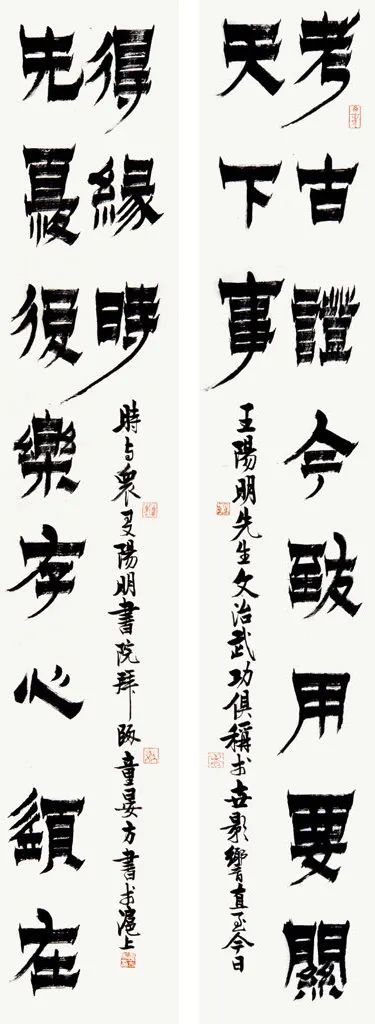 考古證今致用要關
天下事
王陽明先生文治武功俱稱於世影響直至今日
先憂後樂存心須在
得緣時
時与衆陽明書院拜童晏方書於滬上